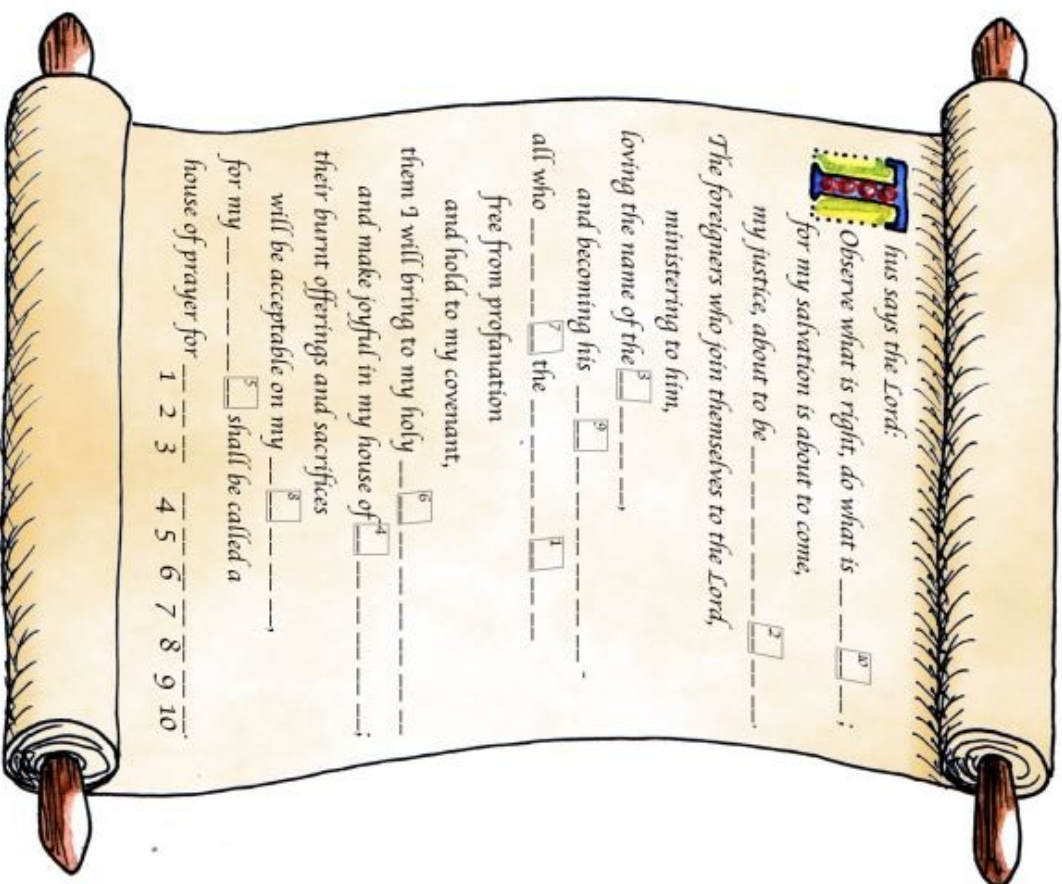 Thus says the Lord:
Observe what is right, do what is _ _ 10 _;
for my salvation is about to come,
my justice, about to be _ _ _ _ _ 2 _ _ _.
The foreigners who join themselves to the Lord,
ministering to him,
loving the name of the 3 _ _ _,
and becoming his _ 9 _ _ _ _ _ _
all who _ _ _ 7 the _ _ _ _ 1 _ _
free from profanation
and hold to my covenant,
them I will bring to my holy _ 6 _ _ _ _ _ _
and make joyful in my house of 4 _ _ _ _ _;
their burnt offerings and sacrifices
will be acceptable on my _ 8 _ _ _,
for my _ _ _ _ 5 shall be called a
house of prayer for _ _ _ _ _ _ _ _ _ _.
1 2 3 4 5 6 7 8 9 10